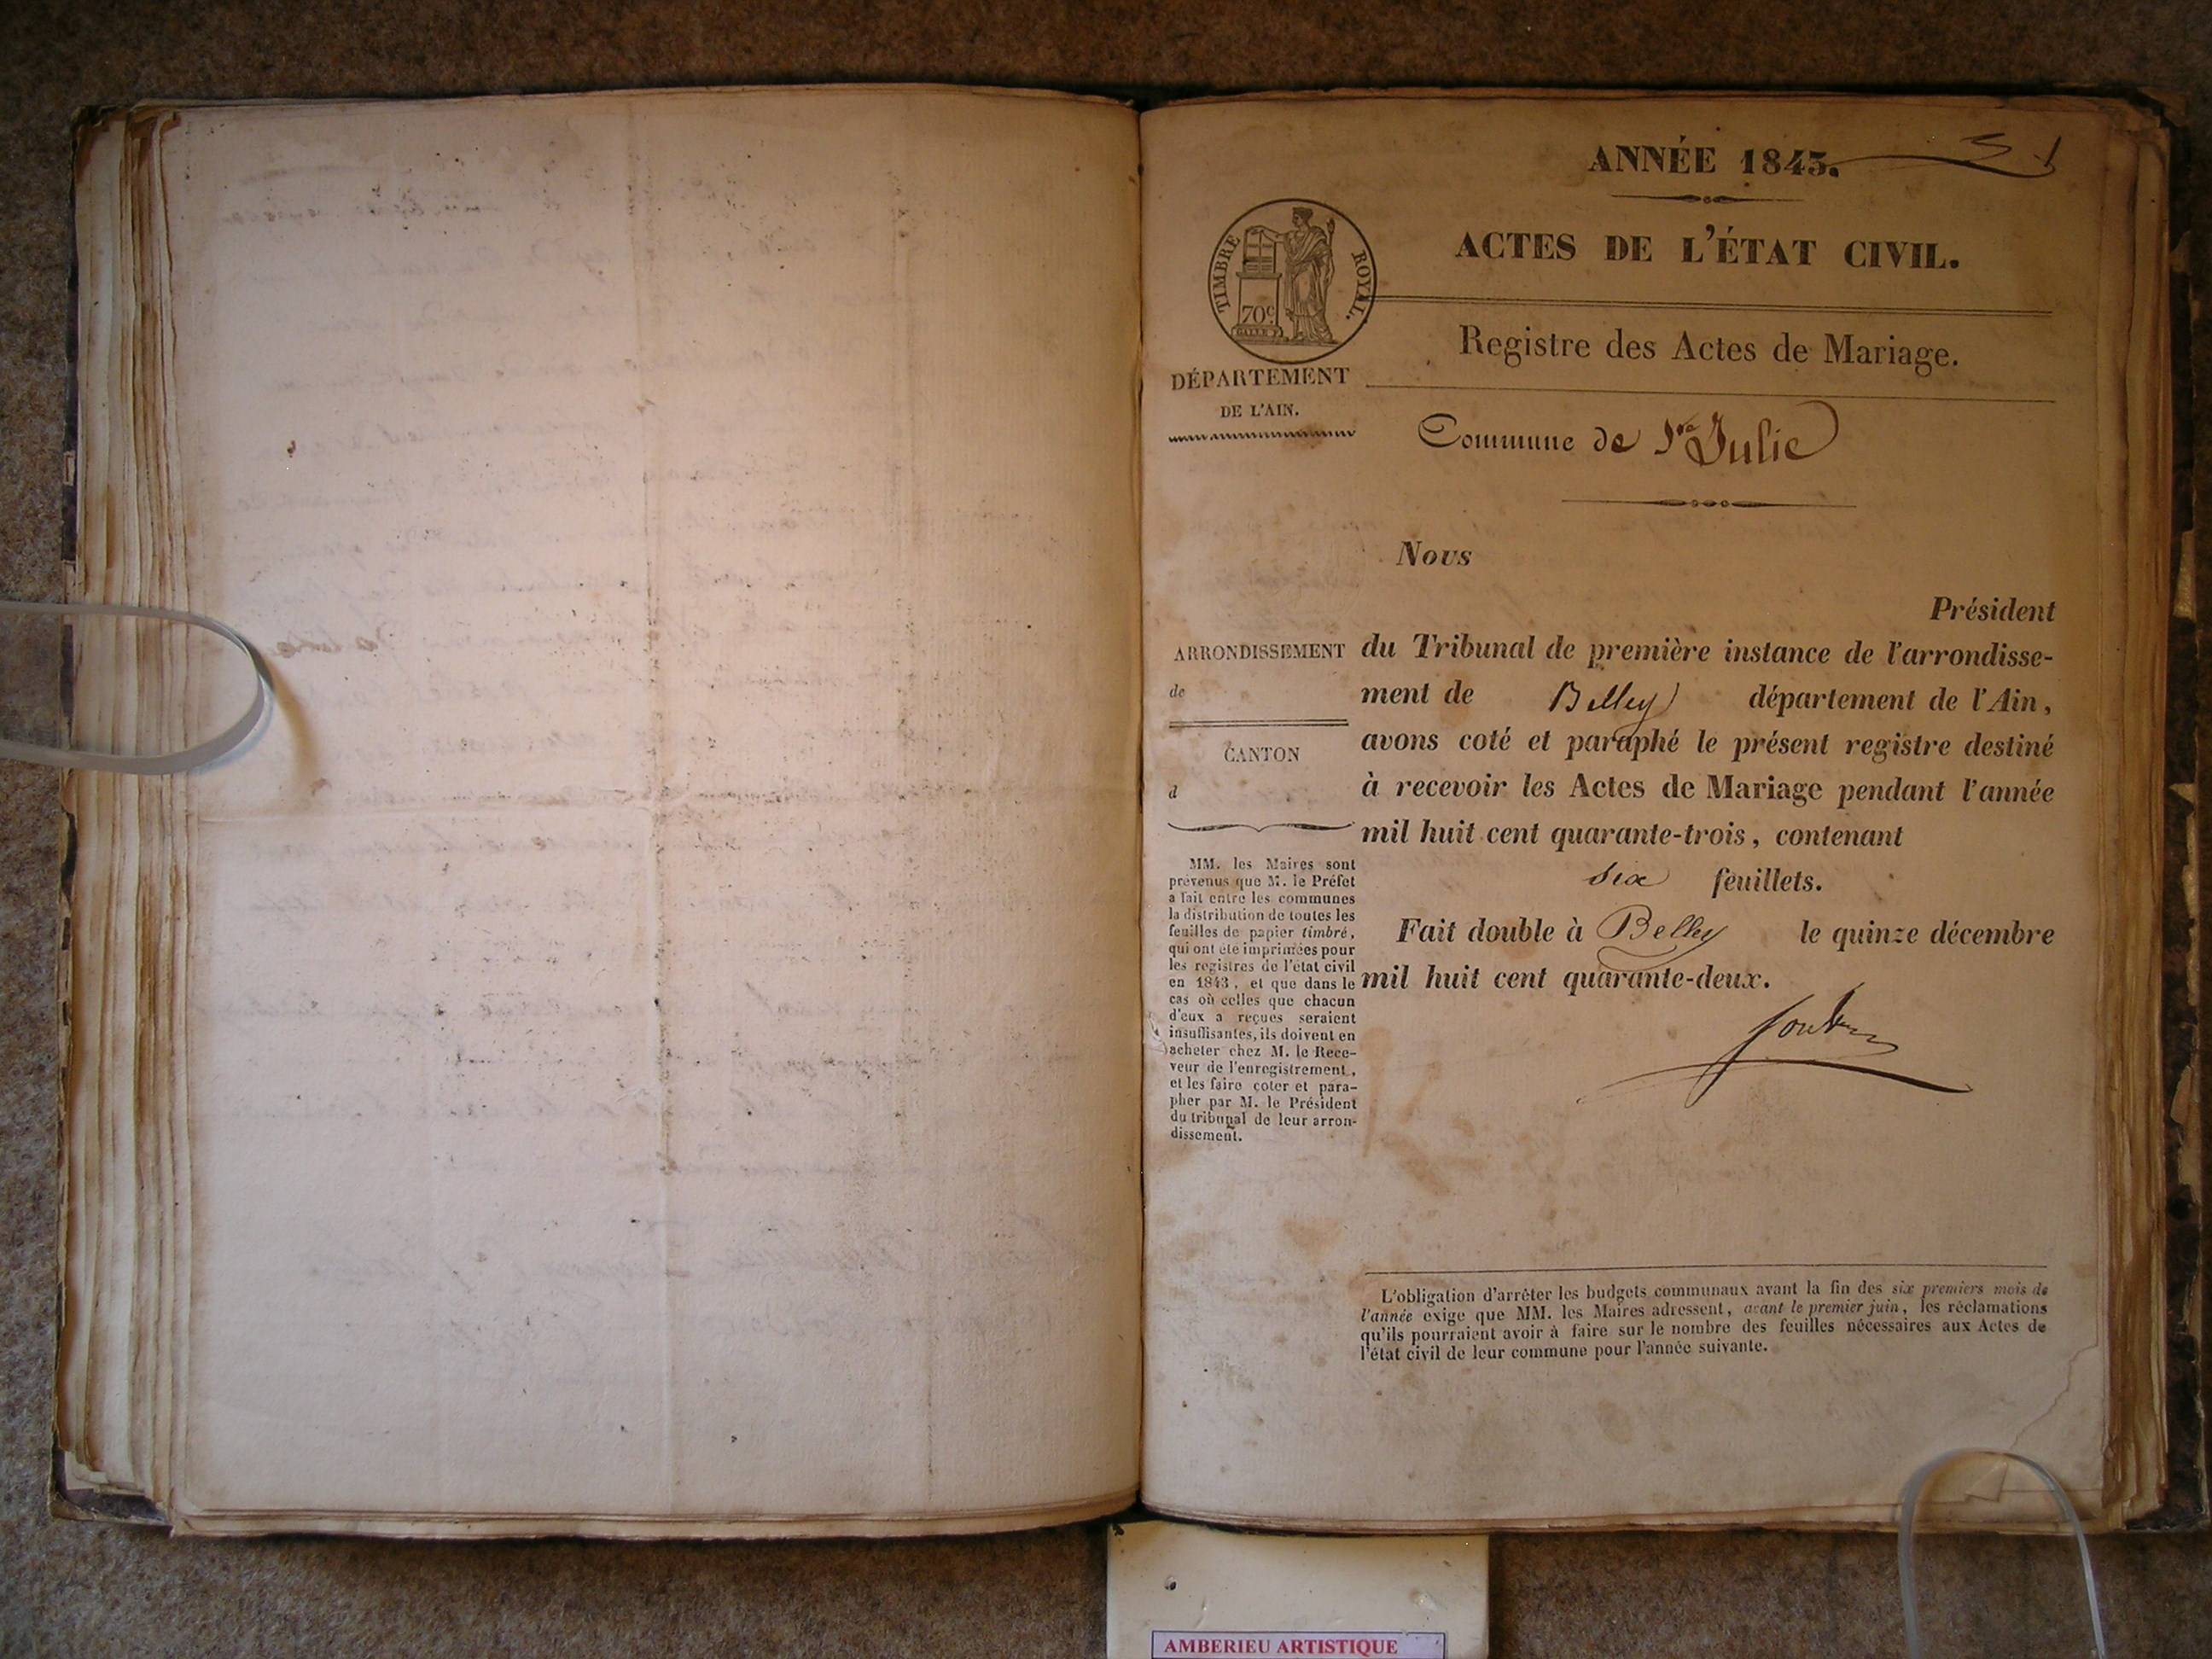 ANNÉE 1843.
ACTES DE L'ÉTAT CIVIL.
TIMBRE ROYAL.
70c
Registre des Actes de Mariage.
DÉPARTEMENT
DE L'AIN.
Commune de Ste Julie
Nous
Président
ARRONDISSEMENT
de
CANTON
d
du Tribunal de première instance de l'arrondisse-
ment de Belley département de l'Ain,
avons coté et paraphé le présent registre destiné
à recevoir les Actes de Mariage pendant l'année
mil huit cent quarante-trois, contenant
six feuillets.
Fait double à Belley le quinze décembre
mil huit cent quarante-deux.
MM. les Maires sont
prévenus que M. le Préfet
a fait entre les communes
la distribution de toutes les
feuilles de papier timbré,
qui ont été imprimées pour
les registres de l'état civil
en 1843, et que dans le
cas où celles que chacun
d'eux a reçues seraient
insuffisantes, ils doivent en
acheter chez M. le Rece-
veur de l'enregistrement,
et les faire coter et para-
pher par M. le Président
du tribunal de leur arron-
dissement.
L'obligation d'arrêter les budgets communaux avant la fin des six premiers mois de
l'année exige que MM. les Maires adressent, avant le premier juin, les réclamations
qu'ils pourraient avoir à faire sur le nombre des feuilles nécessaires aux Actes de
l'état civil de leur commune pour l'année suivante.
AMBERIEU ARTISTIQUE